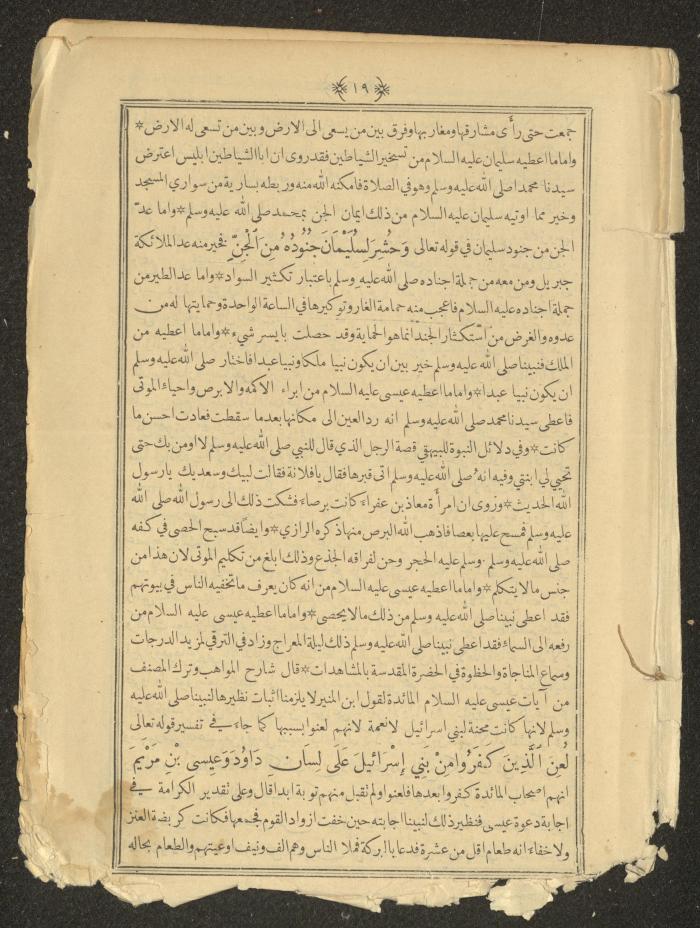 ١٩
جمعت حتى رأى مشارقها ومغاربها وفرق بين من يسعى الى الارض وبين من تسعى له الارض*
واما ما اعطيه سليمان عليه السلام من تسخير الشياطين فقد روى ان ابا الشياطين ابليس اعترض
سيدنا محمدا صلى الله عليه وسلم وهو في الصلاة فامكنه الله منه وربطه بسارية من سواري المسجد
وخير مما اوتيه سليمان عليه السلام من ذلك ايمان الجن بمحمد صلى الله عليه وسلم*واما عدّ
الجن من جنود سليمان في قوله تعالى وَحُشِرَ لِسُلَيْمَانَ جُنُودُهُ مِنَ الْجِنِّ فخير منه عد الملائكة
جبريل ومن معه من جملة اجناده صلى الله عليه وسلم باعتبار تكثير السواد*واما عد الطير من
جملة اجناده عليه السلام فاعجب منه حمامة الغار وتوكيرها في الساعة الواحدة وحمايتها له من
عدوه والغرض من استكثار الجند انما هو الحماية وقد حصلت بايسر شيء*واما ما اعطيه من
الملك فنبينا صلى الله عليه وسلم خير بين ان يكون نبيا ملكا ونبيا عبدا فاختار صلى الله عليه وسلم
ان يكون نبيا عبدا*واما ما اعطيه عيسى عليه السلام من ابراء الاكمه والابرص واحياء الموتى
فاعطى سيدنا محمد صلى الله عليه وسلم انه رد العين الى مكانها بعد ما سقطت فعادت احسن ما
كانت*وفي دلائل النبوة للبيهقي قصة الرجل الذي قال للنبي صلى الله عليه وسلم لا اومن بك حتى
تحيي لي ابنتي وفيه انه صلى الله عليه وسلم اتى قبرها فقال يا فلانة فقالت لبيك وسعديك يا رسول
الله الحديث*وروى ان امرأة معاذ بن عفراء كانت برصاء فشكت ذلك الى رسول الله صلى الله
عليه وسلم فمسح عليها بعصا فاذهب الله البرص منها ذكره الرازي*وايضا قد سبح الحصى في كفه
صلى الله عليه وسلم وسلم عليه الحجر وحن لفراقه الجذع وذلك ابلغ من تكليم الموتى لان هذا من
جنس ما لا يتكلم*واما ما اعطيه عيسى عليه السلام من انه كان يعرف ما تخفيه الناس في بيوتهم
فقد اعطى نبينا صلى الله عليه وسلم من ذلك ما لا يحصى*واما ما اعطيه عيسى عليه السلام من
رفعه الى السماء فقد اعطى نبينا صلى الله عليه وسلم ذلك ليلة المعراج وزاد في الترقي لمزيد الدرجات
وسماع المناجاة والحظوة في الحضرة المقدسة بالمشاهدات*قال شارح المواهب وترك المصنف
من آيات عيسى عليه السلام المائدة لقول ابن المنير لا يلزمنا اثبات نظيرها لنبينا صلى الله عليه
وسلم لانها كانت محنة لبني اسرائيل لا نعمة لانهم لعنوا بسببها كما جاء في تفسير قوله تعالى
لُعِنَ الَّذِينَ كَفَرُوا مِنْ بَنِي إِسْرَائِيلَ عَلَى لِسَانِ دَاوُدَ وَعِيسى بْنِ مَرْيَمَ
انهم اصحاب المائدة كفروا بعدها فلعنوا ولم تقبل منهم توبة ابدا قال وعلى تقدير الكرامة في
اجابة دعوة عيسى فنظير ذلك لنبينا اجابته حين خفت ازواد القوم فجمعها فكانت كربضة العنز
ولا خفاء انه طعام اقل من عشرة فدعا بالبركة فملا الناس وهم الف ونيف اوعيتهم والطعام بحاله